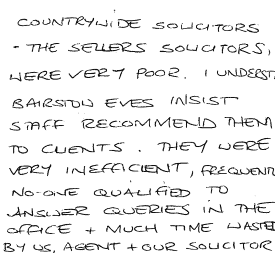 COUNTRYWIDE SOLICITORS
- THE SELLERS SOLICITORS,
WERE VERY POOR. I UNDERST
BAIRSTOW EVES INSIST
STAFF RECOMMEND THEM
TO CLIENTS. THEY WERE
VERY INEFFICIENT, FREQUENT
NO-ONE QUALIFIED TO
ANSWER QUERIES IN THE
OFFICE + MUCH TIME WASTE
BY US, AGENT + OUR SOLICITOR